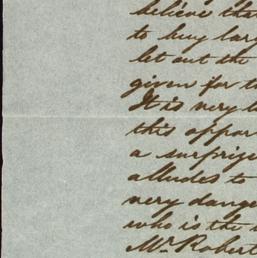 believe tha
to buy larg
let out the
given for t
It is very l
this oppor
a surprize
alludes to
very dange
who is the
Mr. Robert